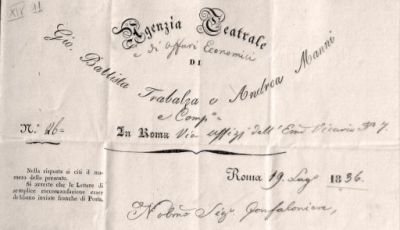 XIV 11
Agenzia Teatrale
e di affari Economici
DI
Gio. Battista Trabalza e Andrea Manni
e Comp.
N.° 26=
In Roma Via Uffizj dell' Emo Vicario N° 7
Nella risposta si citi il numero della presente.
Si avverte che le Lettere di
semplice raccomandazione esser
debbono inviate franche di Posta.
Roma 19 Lug° 1836.
Nobmo Sigr Gonfaloniere,